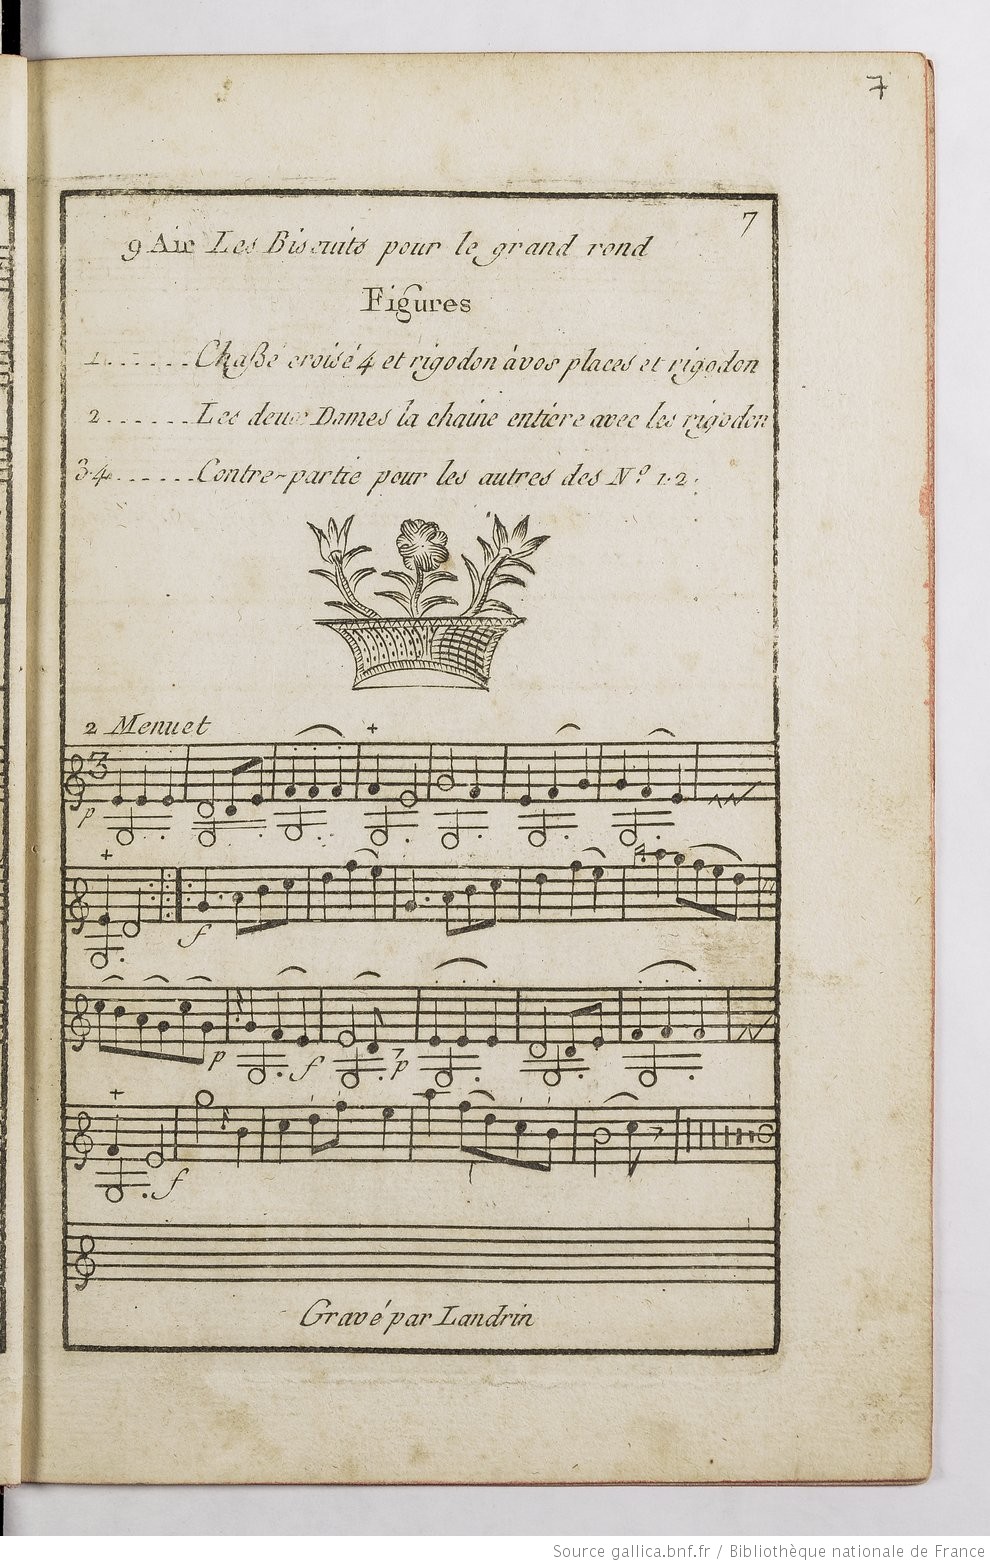 7
7
9 Air Les Biscuits pour le grand rond
Figures
1.......Chaßé croisé 4 et rigodon à vos places et rigodon
2.......Les deux Dames la chaine entiere avec les rigodon
3.4.......Contre-partie pour les autres des Nº 1.2.
2 Menuet
3
p
f
p f p
f
Gravé par Landrin
Source gallica.bnf.fr / Bibliothèque nationale de France